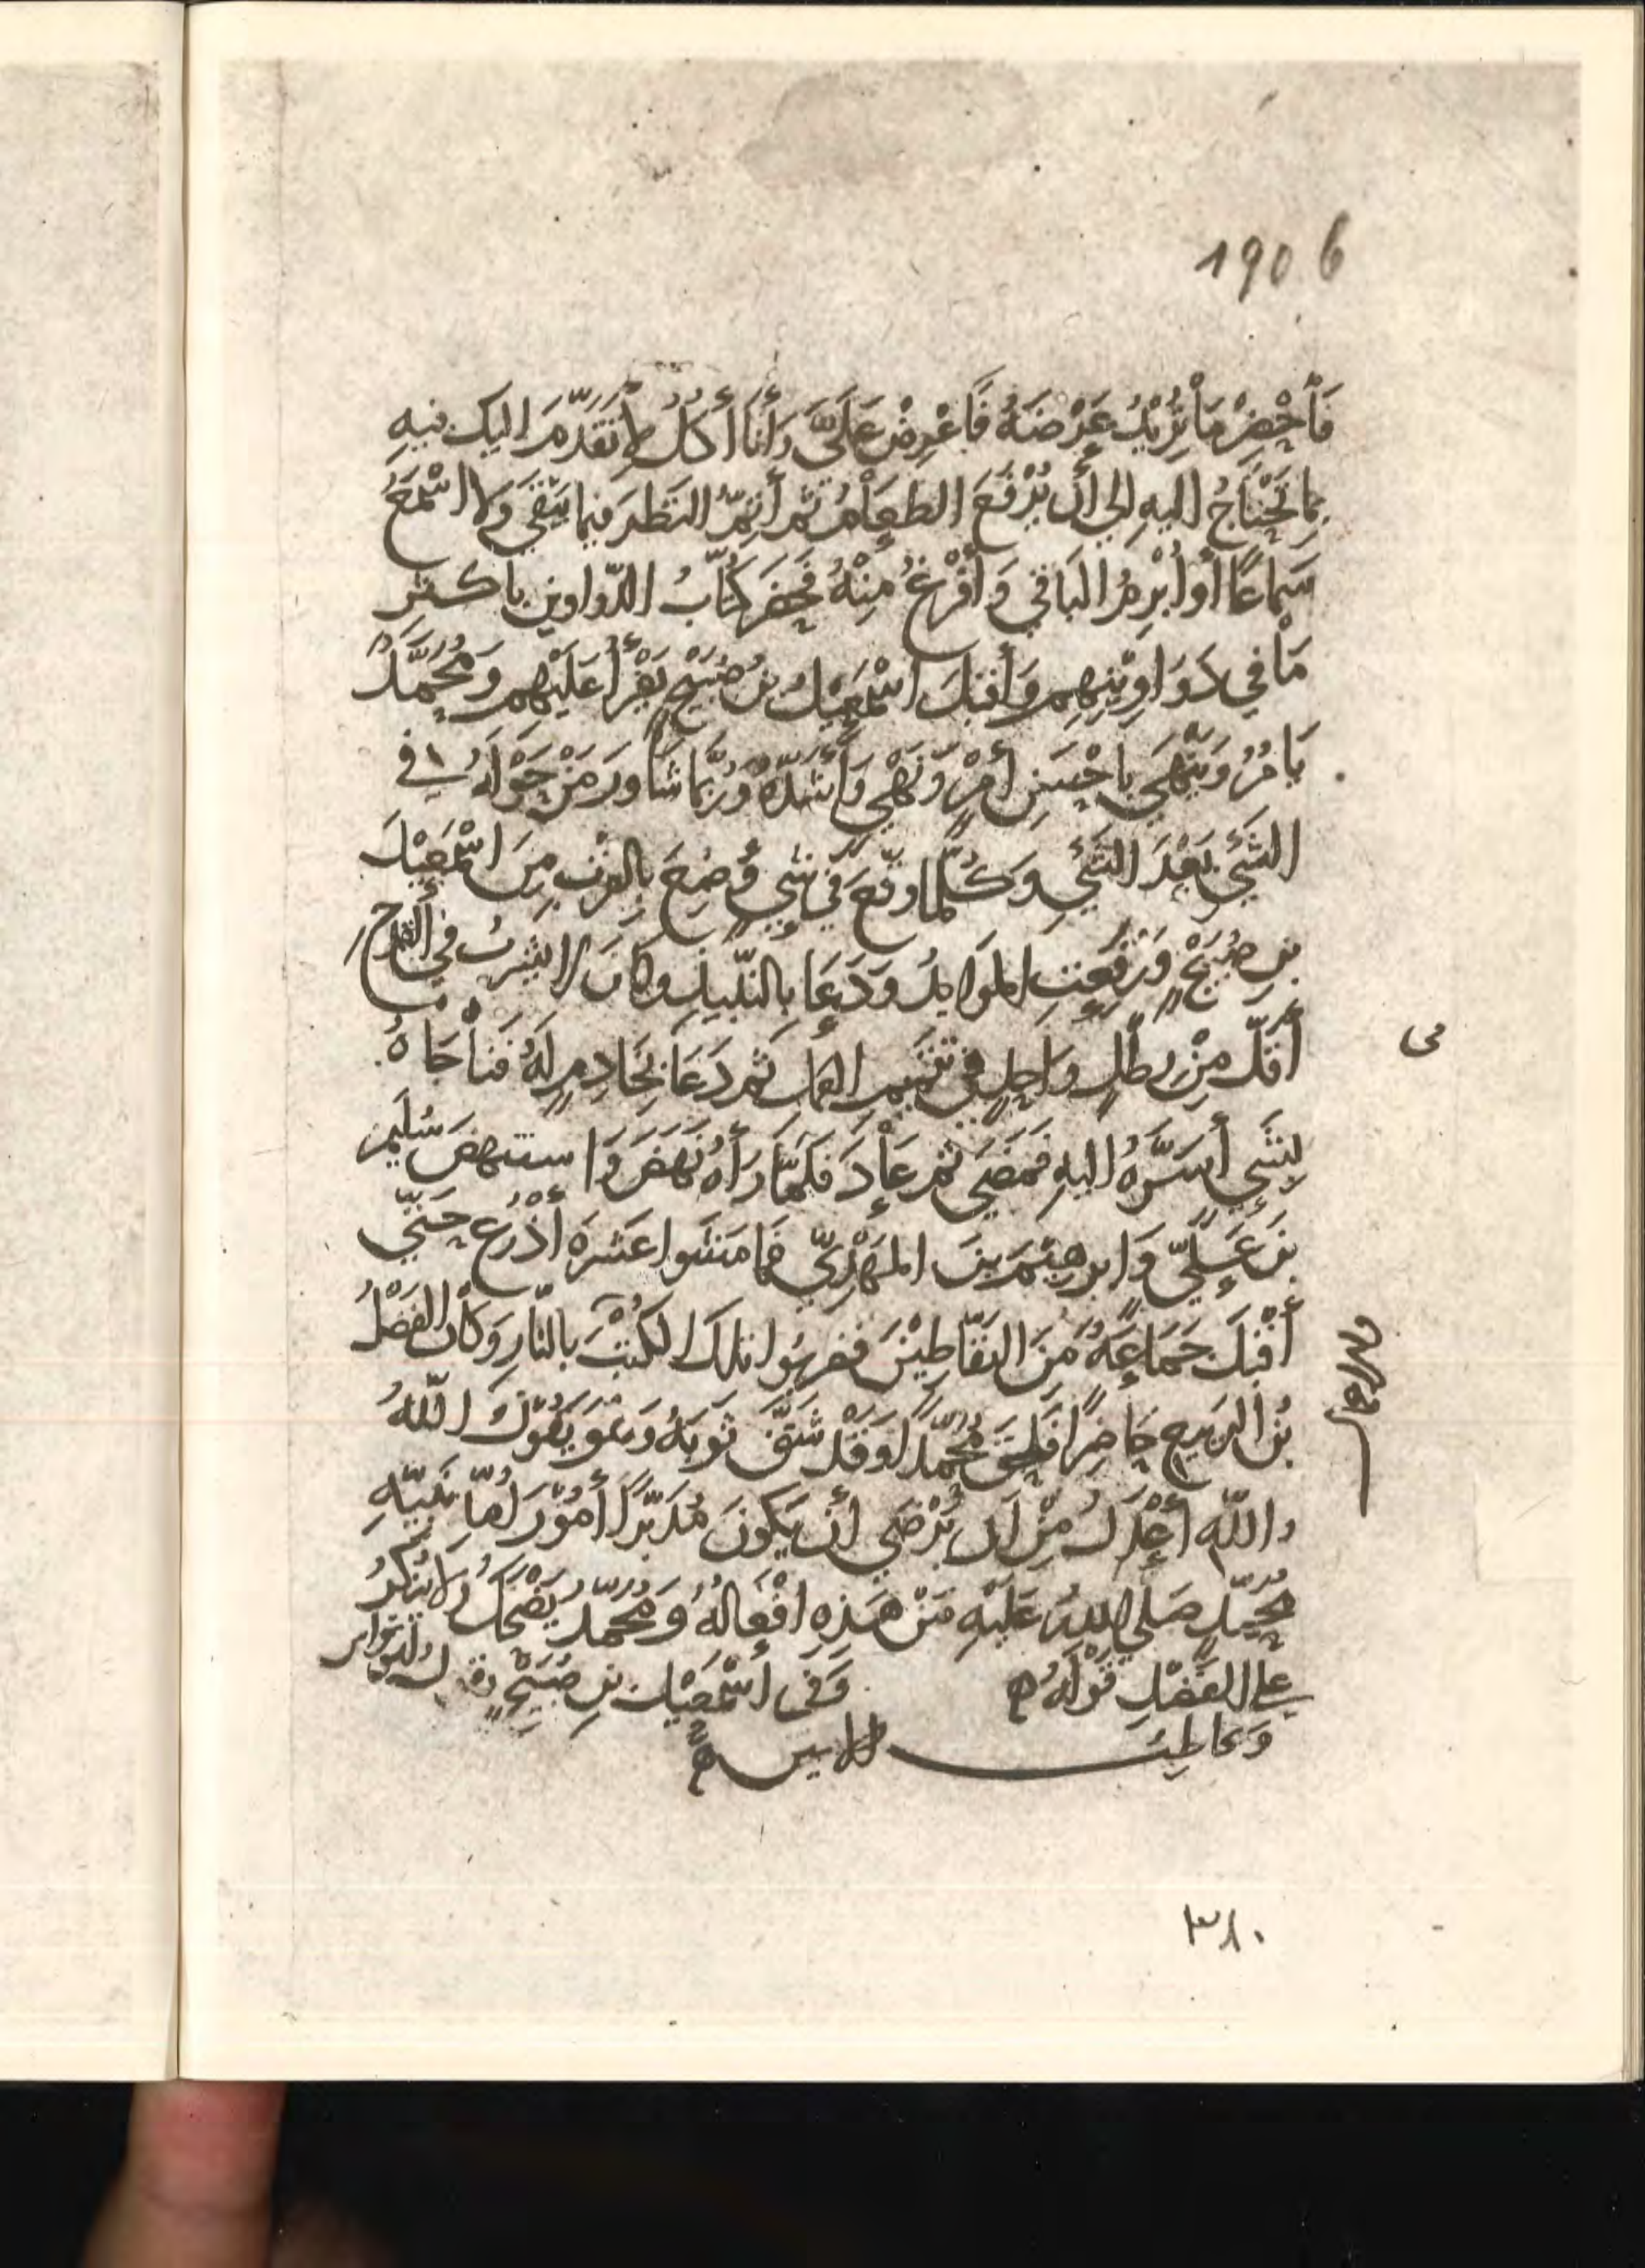 190 6
فَأَحْضِرْ مَا تُرِيْدُ عَرْضَهُ فَاعْرِضْ عَلَيَّ وَأَنَا أَكُلُ لِأَتَقَدَّمَ اليك فيهِ
بِمَا تَحْتَاجُ اليهِ إلي أن يُرْفَعَ الطعَامُ ثم أُتِمُّ النَظرَ فيما يَبْقَي وَلا اسْمَعُ
سَمَاعًا أو أُبْرِمُ البَاقي وَأَفْرُغُ مِنْهُ فحَضَر كُتّابُ الدّواوين باكثر
مَا في دَوَاوِيْنِهِم وَأقبَلَ اسْمعِيْلُ بنُ صُبَيْحٍ يَقْرَأُ عَلَيْهِم وَمُحَمَّدٌ
يَامُرُ وَيَنْهَي باحْسَنِ أمْرٍ وَنَهْيٍ وَأَشَدِّهِ وَرُبَّمَا شَاوَرَ مَنْ حَوْلَهُ في
الشَيْءِ بَعْدَ الشَيْءِ وَكُلَّمَا وَقّعَ في شيءٍ وُضِعَ بِالقُرْبِ مِنَ اسْمعِيْلَ
بنِ صُبَيْحٍ وَرُفِعَتِ الموَايدُ وَدَعَا بِالنّبيذِ وكانَ لا يشربُ في القدح
أقَلّ مِنْ رطْلٍ وَاحِدٍ في تتميم العمل ثم دَعَا بخَادِمٍ لَهُ فنَاجَاهُ
بِشَيءٍ أسَرَّهُ اليهِ فمَضَي ثم عَادَ فَلَمَّا رَآهُ نَهَضَ وَاستنهضَ سُلَيمن
بنَ عَليّ وَابرهيْمَ بنَ المَهْدِيّ فمَا مَشَوا عَشرَة أذْرُع حَتّي
أقْبَلَ جَمَاعَةٌ مِنَ النَفّاطِيْنَ فضربُوا تلكَ الكُتُبَ بالنّارِ وَكانَ الفَضْلُ
بْنُ الرّبيع حَاضِرًا فَلحِقَ مُحَمّدًا وَقَدْ شَقَّ ثَوبَهُ وَهُوَ يَقُوْلُ اللّهُ
واللّه أعْدَلُ مِنْ أن يَرْضَي أن يكونَ مُدَبّرًا أُمُوْرَ أُمّةِ نَبيّهِ
مُحَمّدٍ صَلي اللهُ عَلَيْهِ مَنْ هَذِهِ افْعَالُهُ وَمُحَمّدٌ يَضْحَكُ وَلا يُنْكِرُ
علي الفَضْلِ قَوْلَهُ ه وَفي اسْمعِيْلَ بنِ صُبَيْحٍ
٣٨٠